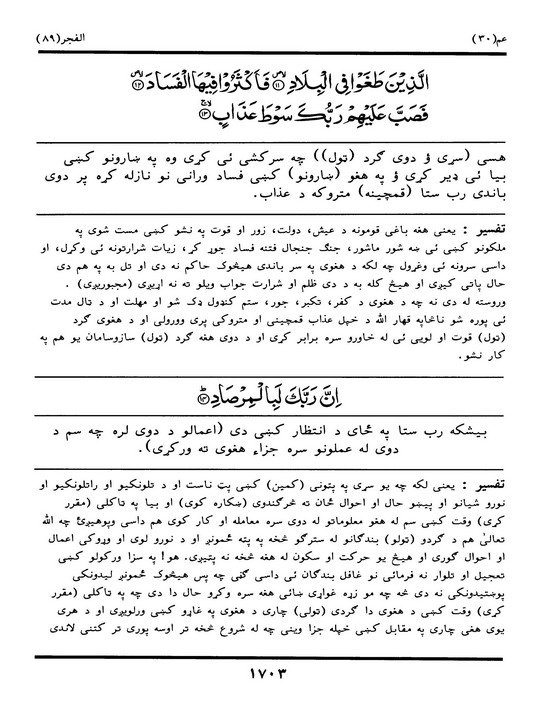 عم(٣٠) الفجر(٨٩)
الَّذِيْنَ طَغَوْا فِي الْبِلَادِ ۝١١ فَاَكْثَرُوْا فِيْهَا الْفَسَادَ ۝١٢
فَصَبَّ عَلَيْهِمْ رَبُّكَ سَوْطَ عَذَابٍ ۝١٣
هسی (سړی ؤ دوی گرد (ټول)) چه سرکشی ئی کړی وه په ښارونو کښی
بیا ئی ډیر کړی ؤ په هغو (ښارونو) کښی فساد ورانی نو نازله کړه پر دوی
باندی رب ستا (قمچینه) متروکه د عذاب.
تفسیر : یعنی هغه باغی قومونه د عیش، دولت، زور او قوت په نشو کښی مست شوی په
ملکونو کښی ئی ښه شور ماشور، جنگ جنجال فتنه فساد جوړ کړ، زیات شرارتونه ئی وکړل، او
داسی سرونه ئی وغړول چه لکه د هغوی په سر باندی هیڅوک حاکم نه دی او تل به په هم دی
حال پاتی کیږی او هیڅ کله به د دی ظلم او شرارت جواب ویلو ته نه اړیږی (مجبوریږی) .
وروسته له دی نه چه د هغوی د کفر، تکبر، جور، ستم کنډول ډک شو او مهلت او د تال مدت
ئی پوره شو ناڅاپه قهار الله د خپل عذاب قمچینی او متروکی پری وورولی او د هغوی گرد
(ټول) قوت او لویی ئی له خاورو سره برابر کړی او د دوی هغه گرد (ټول) سازوسامان یو هم په
کار نشو.
اِنَّ رَبَّكَ لَبِالْمِرْصَادِ ۝١٤
بیشکه رب ستا په ځای د انتظار کښی دی (اعمالو د دوی لره چه سم د
دوی له عملونو سره جزاء هغوی ته ورکړی).
تفسیر : یعنی لکه چه یو سړی په پټونی (کمین) کښی پټ ناست او د تلونکیو او راتلونکیو او
نورو شیانو او پیښو حال او احوال ځان ته څرگندوی (ښکاره کوی) او بیا په ټاکلی (مقرر
کړی) وقت کښی سم له هغو معلوماتو له دوی سره معامله او کار کوی هم داسی وپوهیږئ چه الله
تعالیٰ هم د گردو (ټولو) بندگانو له سترگو څخه په پټه ځمونږ او د نورو لوی او وړوکی اعمال
او احوال گوری او هیڅ یو حرکت او سکون له هغه څخه نه پټیږی. هو! په سزا ورکولو کښی
تعجیل او تلوار نه فرمائی نو غافل بندگان ئی داسی گڼی چه پس هیڅوک ځمونږ لیدونکی
پوښتیدونکی نه دی څه چه مو زړه غواړی ښائی هغه سره وکړو حال دا دی چه په ټاکلی (مقرر
کړی) وقت کښی د هغوی دا گردی (ټولی) چاری د هغوی په غاړو کښی ورلویږی او د هری
یوی هغی چاری په مقابل کښی خپله جزا وینی چه له شروع څخه تر اوسه پوری تر کتنی لاندی
١٧٠٣